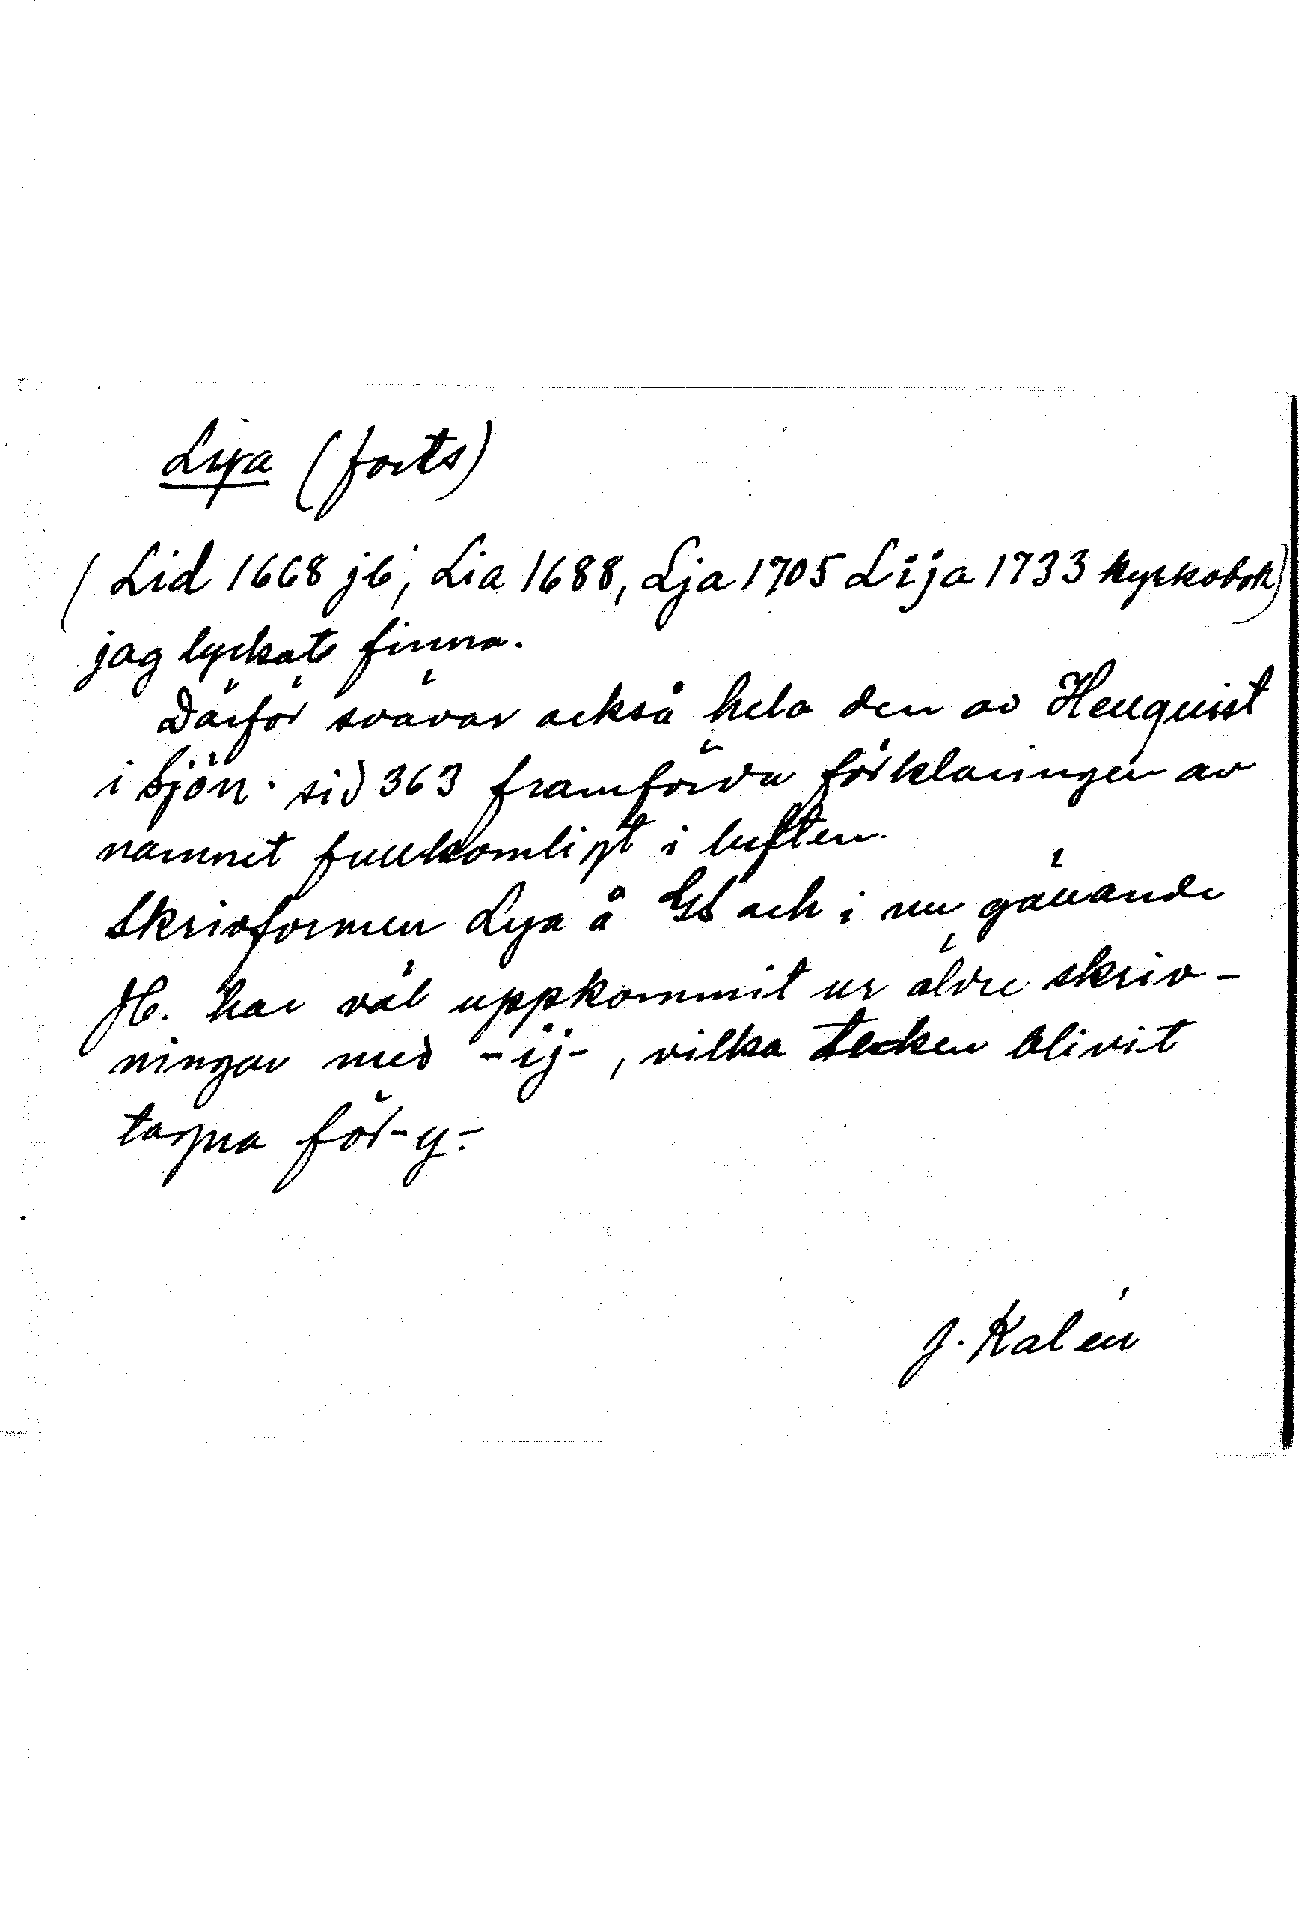 Lya (forts)
(Lid 1668 jb, Lia 1688, Lja 1705 Lija 1733 kyrkobok)
jag lyckats finna.
Därför svävar också hela den av Hellquist
i Sjön. sid 363 framförda förklaringen av
namnet fullkomligt i luften.
Skrivformen Lya å GS och i nu gällande
Jb. har väl uppkommit ur äldre skriv-
ningar med -ij-, vilka tecken blivit
tagna för -y-.
J. Kalén